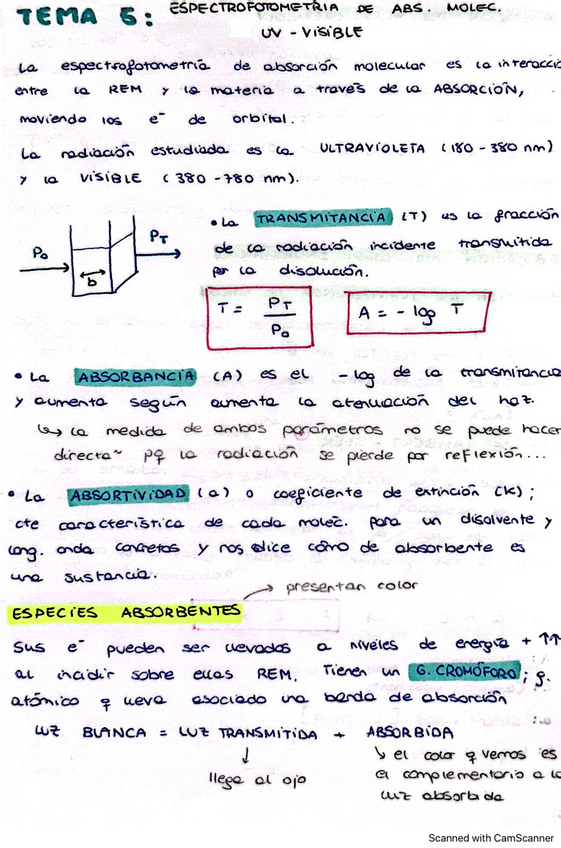 TEMA 5: ESPECTROFOTOMETRIA DE ABS. MOLEC.
UV - VISIBLE
La espectrofotometría de absorción molecular es la interacció
entre la REM y la materia a través de la ABSORCIÓN,
moviendo los e⁻ de orbital.
La radiación estudiada es la ULTRAVIOLETA (180 - 380 nm)
y la VISIBLE (380 - 780 nm).
• La TRANSMITANCIA (T) es la fracción
de la radiación incidente transmitida
por la disolución.
P₀ b P_T
T = P_T / P₀
A = - log T
• La ABSORBANCIA (A) es el -log de la transmitancia
y aumenta según aumenta la atenuación del haz.
↳ la medida de ambos parámetros no se puede hacer
directa~ pq la radiación se pierde por reflexión...
• La ABSORTIVIDAD (a) o coeficiente de extinción (K);
cte característica de cada moléc. para un disolvente y
long. onda concretos y nos dice cómo de absorbente es
una sustancia.
ESPECIES ABSORBENTES → presentan color
Sus e⁻ pueden ser llevados a niveles de energía + ↑↑
al incidir sobre ellas REM. Tienen un G. CROMÓFORO; g.
atómico q lleva asociado una banda de absorción
LUZ BLANCA = LUZ TRANSMITIDA + ABSORBIDA
↓
llega al ojo
↘ el color q vemos es
el complementario a la
luz absorbida
Scanned with CamScanner